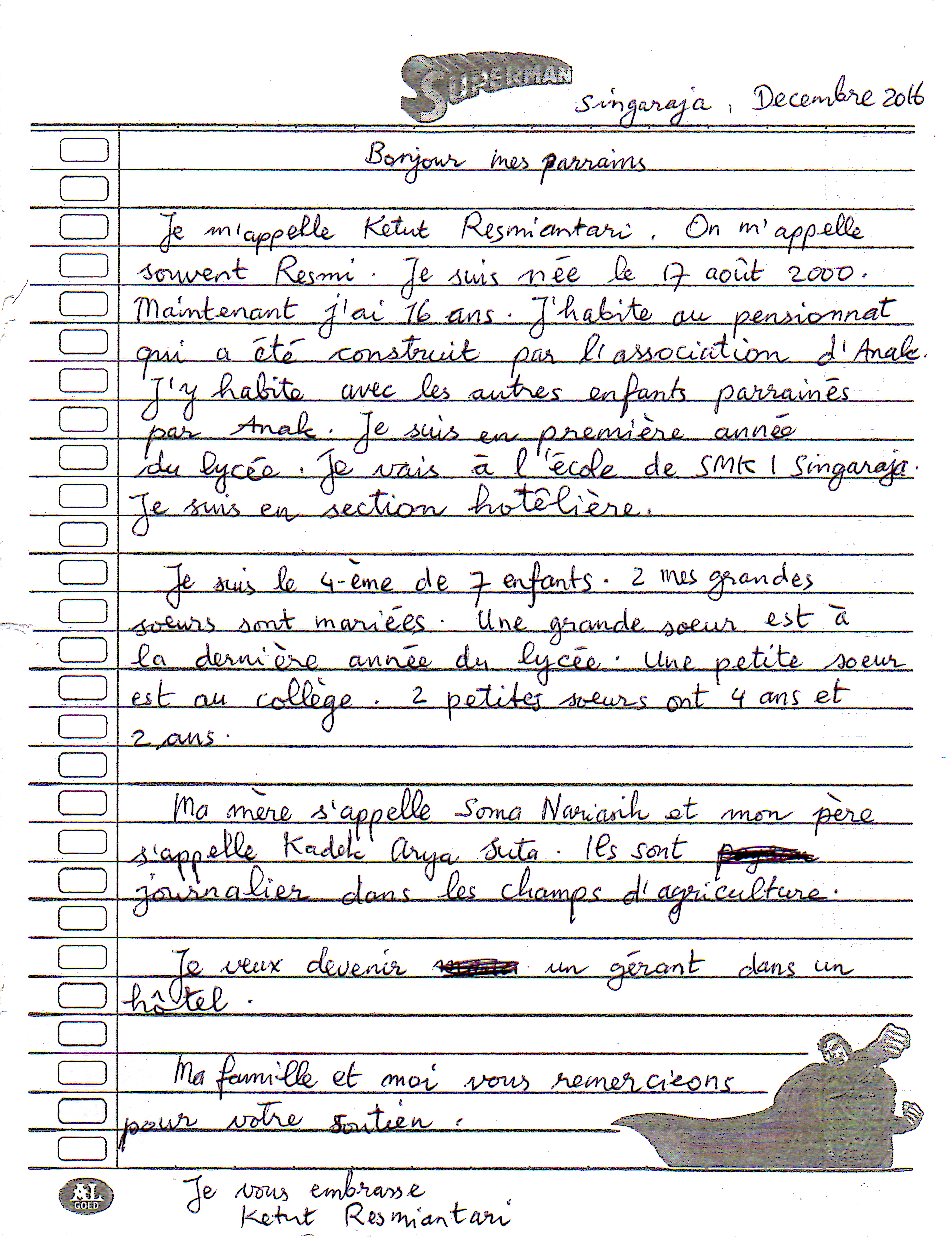 SUPERMAN
Singaraja, Decembre 2016
Bonjour mes parrains
Je m'appelle Ketut Resmiantari. On m'appelle
souvent Resmi. Je suis née le 17 août 2000.
Maintenant j'ai 16 ans. J'habite au pensionnat
qui a été construit par l'association d'Anak.
J'y habite avec les autres enfants parrainés
par Anak. Je suis en première année
du lycée. Je vais à l'école de SMK 1 Singaraja.
Je suis en section hotêlière.
Je suis le 4-ème de 7 enfants. 2 mes grandes
soeurs sont mariées. Une grande soeur est à
la dernière année du lycée. Une petite soeur
est au collège. 2 petites soeurs ont 4 ans et
2 ans.
Ma mère s'appelle Soma Nariasih et mon père
s'appelle Kadek Arya Suta. Ils sont
journalier dans les champs d'agriculture.
Je veux devenir un gérant dans un
hôtel.
Ma famille et moi vous remercieons
pour votre soutien.
Je vous embrasse
Ketut Resmiantari
GOLD